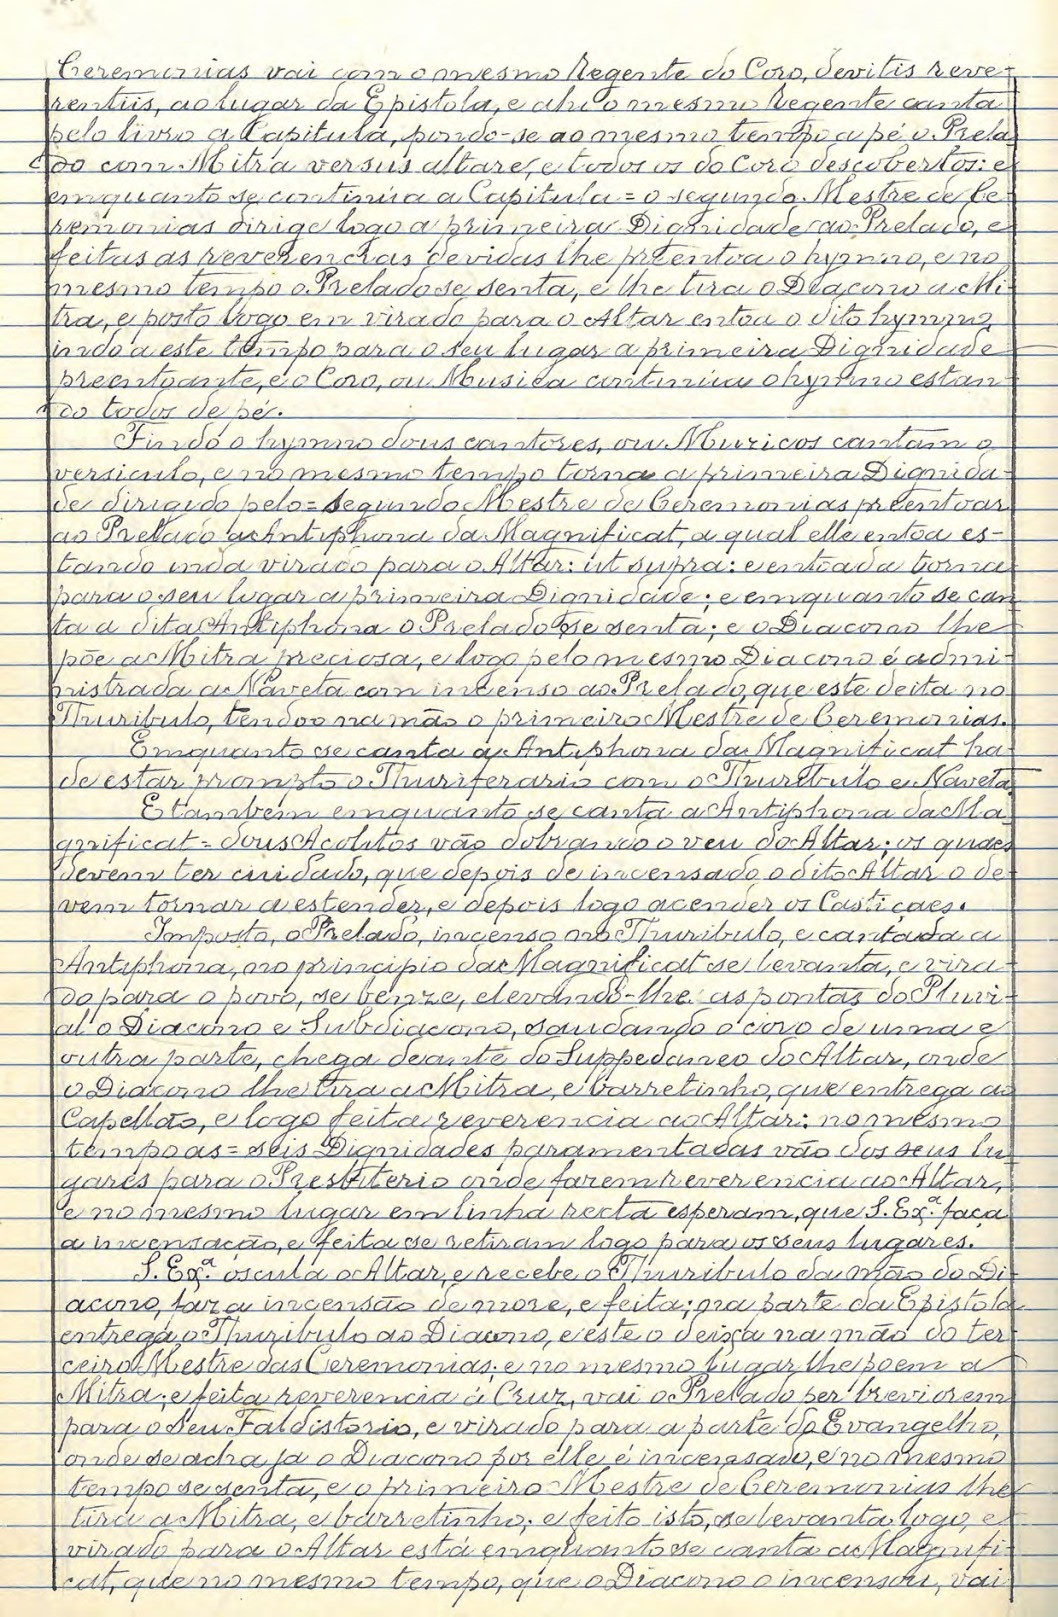 Ceremonias vai com o mesmo Regente do Coro, devitis reve-
rentiis, ao lugar da Epistola, e ahi o mesmo Regente canta
pelo livro a Capitula, pondo-se ao mesmo tempo a pé o Prela-
do com Mitra versus altare, e todos os do Coro descobertos: e
emquanto se continúa a Capitula = o segundo Mestre de Ce-
remonias dirige logo a primeira Dignidade ao Prelado, e
feitas as reverencias devidas lhe preentoa o hymno, e no
mesmo tempo o Prelado se senta, e lhe tira o Diacono a Mi-
tra, e posto logo em virado para o Altar entoa o dito hymno,
indo a este tempo para o seu lugar a primeira Dignidade
preentoante, e o Coro, ou Musica continúa o hymno estan-
do todos de pé.
Findo o hymno dous cantores, ou Muzicos cantam o
versiculo, e no mesmo tempo torna a primeira Dignida-
de dirigido pelo = segundo Mestre de Ceremonias preentoar
ao Prelado a Antiphona da Magnificat, a qual elle entoa es-
tando inda virado para o Altar: ut supra: e entoada torna
para o seu lugar a primeira Dignidade; e emquanto se can-
ta a dita Antiphona o Prelado se senta; e o Diacono lhe
põe a Mitra preciosa, e logo pelo mesmo Diacono é admi-
nistrada a Naveta com incenso ao Prelado, que este deita no
Thuribulo, tendo-o na mão o primeiro Mestre de Ceremonias.
Emquanto se canta a Antiphona da Magnificat ha
de estar prompto o Thuriferario com o Thuribulo e Naveta.
E tambem emquanto se canta a Antiphona da Ma-
gnificat = dous Acolitos vão dobrando o veu do Altar; os quaes
devem ter cuidado, que depois de incensado o dito Altar o de-
vem tornar a estender, e depois logo acender os Castiçaes.
Imposto, o Prelado, incenso no Thuribulo, e cantada a
Antiphona, no principio da Magnificat se levanta, e vira-
do para o povo, se benze, elevando-lhe as pontas do Pluvi-
al o Diacono e Subdiacono, saudando o coro de uma e
outra parte, chega deante do Suppedaneo do Altar, onde
o Diacono lhe tira a Mitra, e barretinho, que entrega ao
Capellão, e logo feita reverencia ao Altar: no mesmo
tempo as = seis Dignidades paramentadas vão dos seus lu-
gares para o Presbiterio onde fazem reverencia ao Altar,
e no mesmo lugar em linha recta esperam, que S. Exª. faça
a incensação, e feita se retiram logo para os seus lugares.
S. Exª. oscula o Altar, e recebe o Thuribulo da mão do Di-
acono, faz a incensão de more, e feita; na parte da Epistola
entrega o Thuribulo ao Diacono, e este o deixa na mão do ter-
ceiro Mestre das Ceremonias; e no mesmo lugar lhe poem a
Mitra; e feita reverencia á Cruz, vai o Prelado per breviorem
para o seu Faldistorio, e virado para a parte do Evangelho,
onde se acha ja o Diacono por elle é incensado, e no mesmo
tempo se senta, e o primeiro Mestre de Ceremonias lhe
tira a Mitra, e barretinho; e feito isto, se levanta logo, e
virado para o Altar está emquanto se canta a Magnifi-
cat, que no mesmo tempo, que o Diacono o incensou, vai